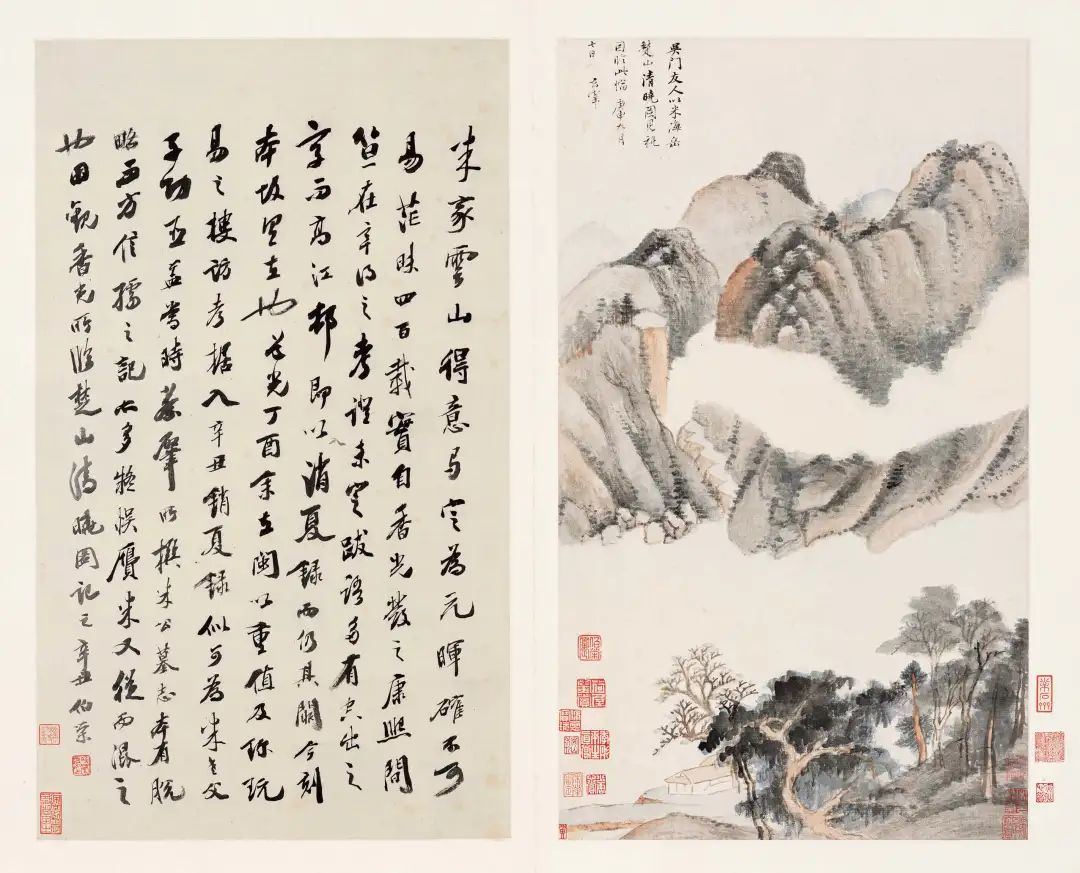 吳門友人以米海岳
楚山清曉圖見視
因臨此幅 庚申九月
七日 玄宰
米家雲山得意定為元暉確不可
易茫昧四百載實自香光發之康熙間
笪在辛得之考證未定跋語多有空出之
字而高江邨即以入消夏錄而仍其闕今刻
本故在也道光丁酉余在閩以重值及珍玩
易之搜訪考据入辛丑銷夏錄似可為米老父
子功臣蓋當時蔡肇所撰米公墓志本有脫
略而方信孺之記亦多疑悞贋米又從而溷之
也因觀香光所臨楚山清曉圖記之辛丑伯榮